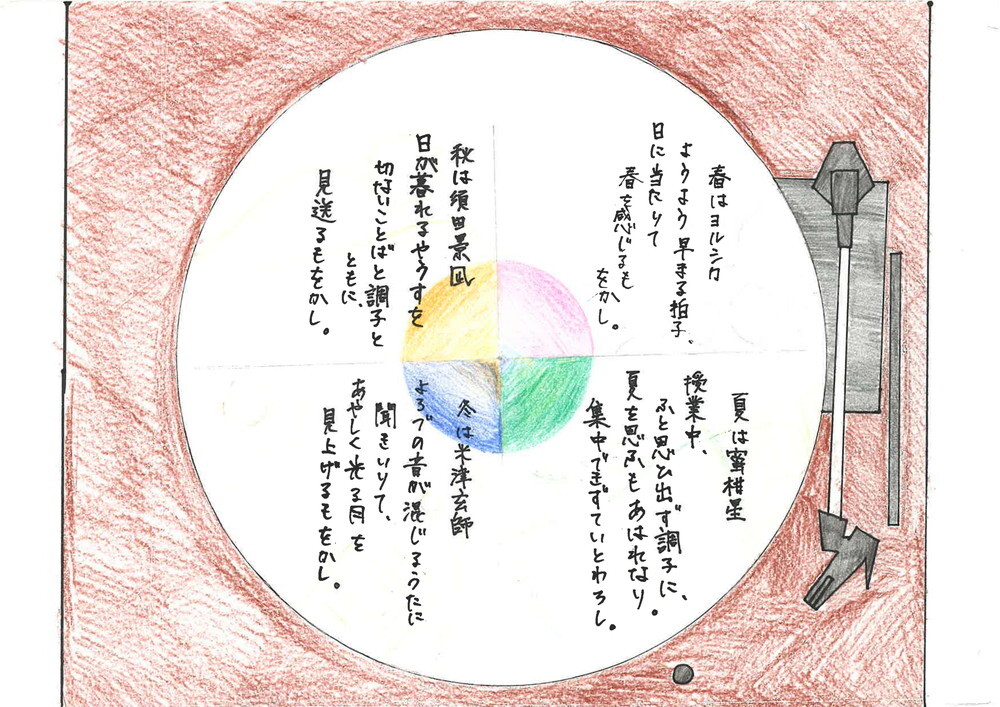 春はヨルシカ
ようよう早まる拍子、
日に当たりて
春を感じるも
をかし。
夏は蜜柑星
授業中、
ふと思ひ出ず調子に、
夏を思ふもあはれなり。
集中できずていとわろし。
秋は須田景凪
日が暮れるやうすを
切ないことばと調子と
ともに、
見送るもをかし。
冬は米津玄師
よろづの音が混じるうたに
聞きいりて、
あやしく光る月を
見上げるもをかし。